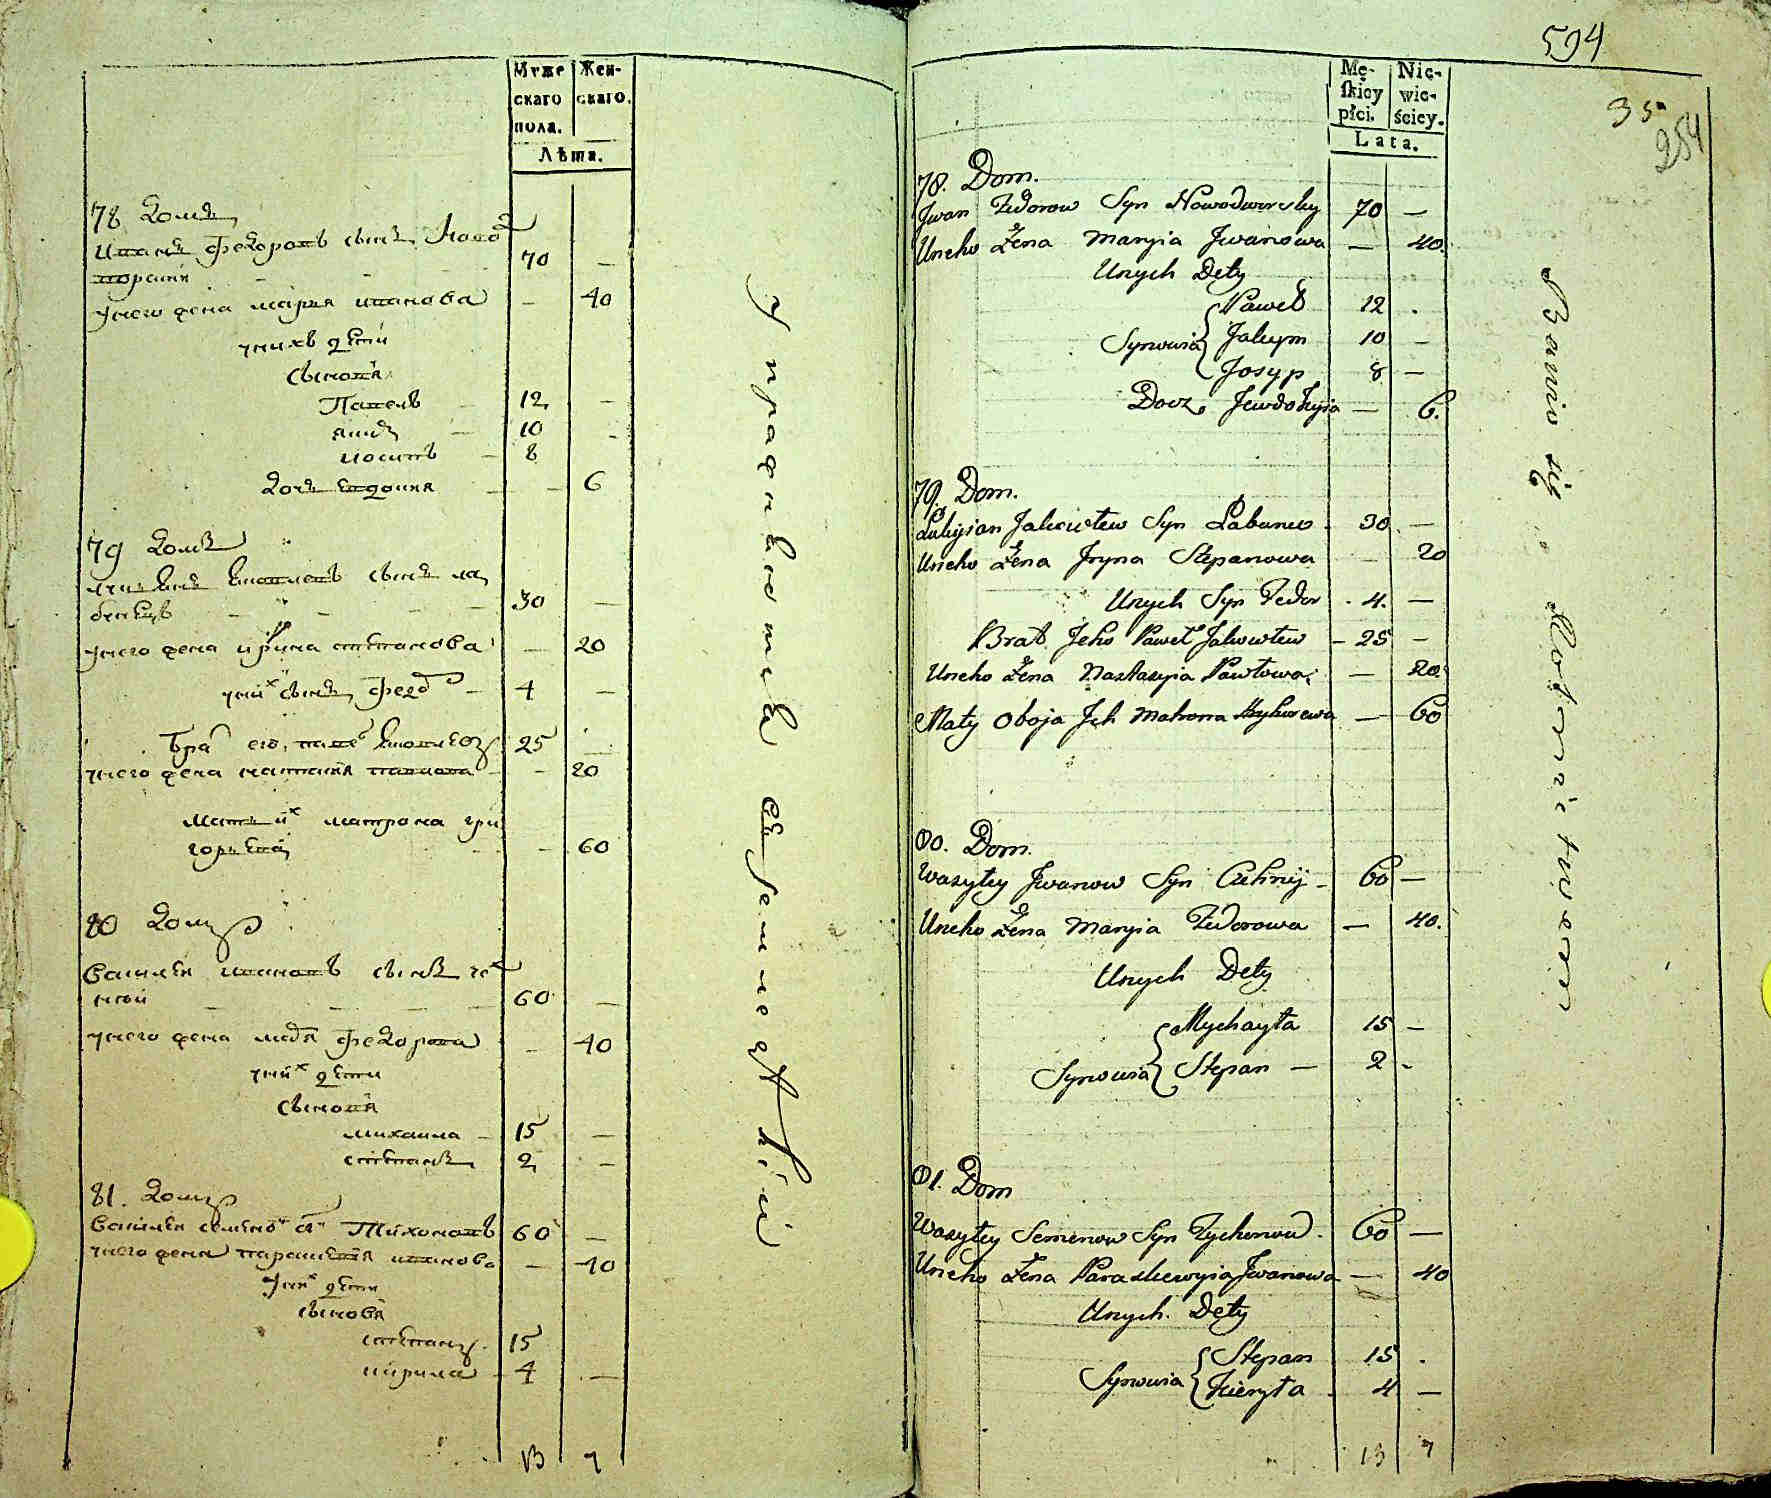 Муже
скаго
пола.
Жен-
скаго.
Лѣта.
78 домъ
Иванъ Федоровъ сынъ Ново
дворский 70 —
унего жена марья иванова — 40
унихъ дети
сыновя
Павелъ — 12 —
яким — 10 -
иосипъ — 8
дочь евдокия — — 6
79 домъ
сынъ ла
бенецъ 30 —
унего жена ирина степанова — 20
уних сынъ федо — 4 —
брат его паве 25 —
унего жена настасия павлова — 20
мать их матрона гри
горьева — 60
80 домъ
василей ивановъ сынъ че
лный 60 —
унего жена мария федорова — 40
уних дети
сыновя
михаила — 15 —
степанъ 2 —
81. домъ
василей семено сы Тихоновъ 60 —
унего жена параскевия иванова — 40
уних дети
сыновя
степанъ 15
кирила — 4 —
13 7
594
35
254
Mę-
skiey
płci.
Nie-
wie-
ściey.
Lata.
78. Dom.
Jwan Fedorow Syn Nowodworsky 70 —
Uneho Żena Maryia Jwanowa — 40.
Unych Dety
Synowia { Paweł 12 .
Jakym 10 —
Josyp 8 —
Docz Jewdokyia — 6.
79. Dom.
Łukyian Jakowlew Syn Łabunec 30 —
Uneho Żena Jryna Stepanowa — 20
Unych Syn Fedor . 4. —
Brat Jeho Paweł Jakowlew — 25 —
Uneho Żena Nastasyia Pawłowa — 20.
Maty Oboja Jch Matrona Hryhorewa — 60
80. Dom.
Wasyley Jwanow Syn Czelnij — 60 —
Uneho Żena Maryia Fedorowa — 40.
Unych Dety
Synowia { Mychayła 15 —
Stepan — 2 -
81. Dom
Wasyley Semenow Syn Tychonow . 60 —
Uneho Żena Paraskewyia Jwanowa — 40
Unych. Dety
Synowia { Stepan 15 .
Kieryła . 4 —
13 7